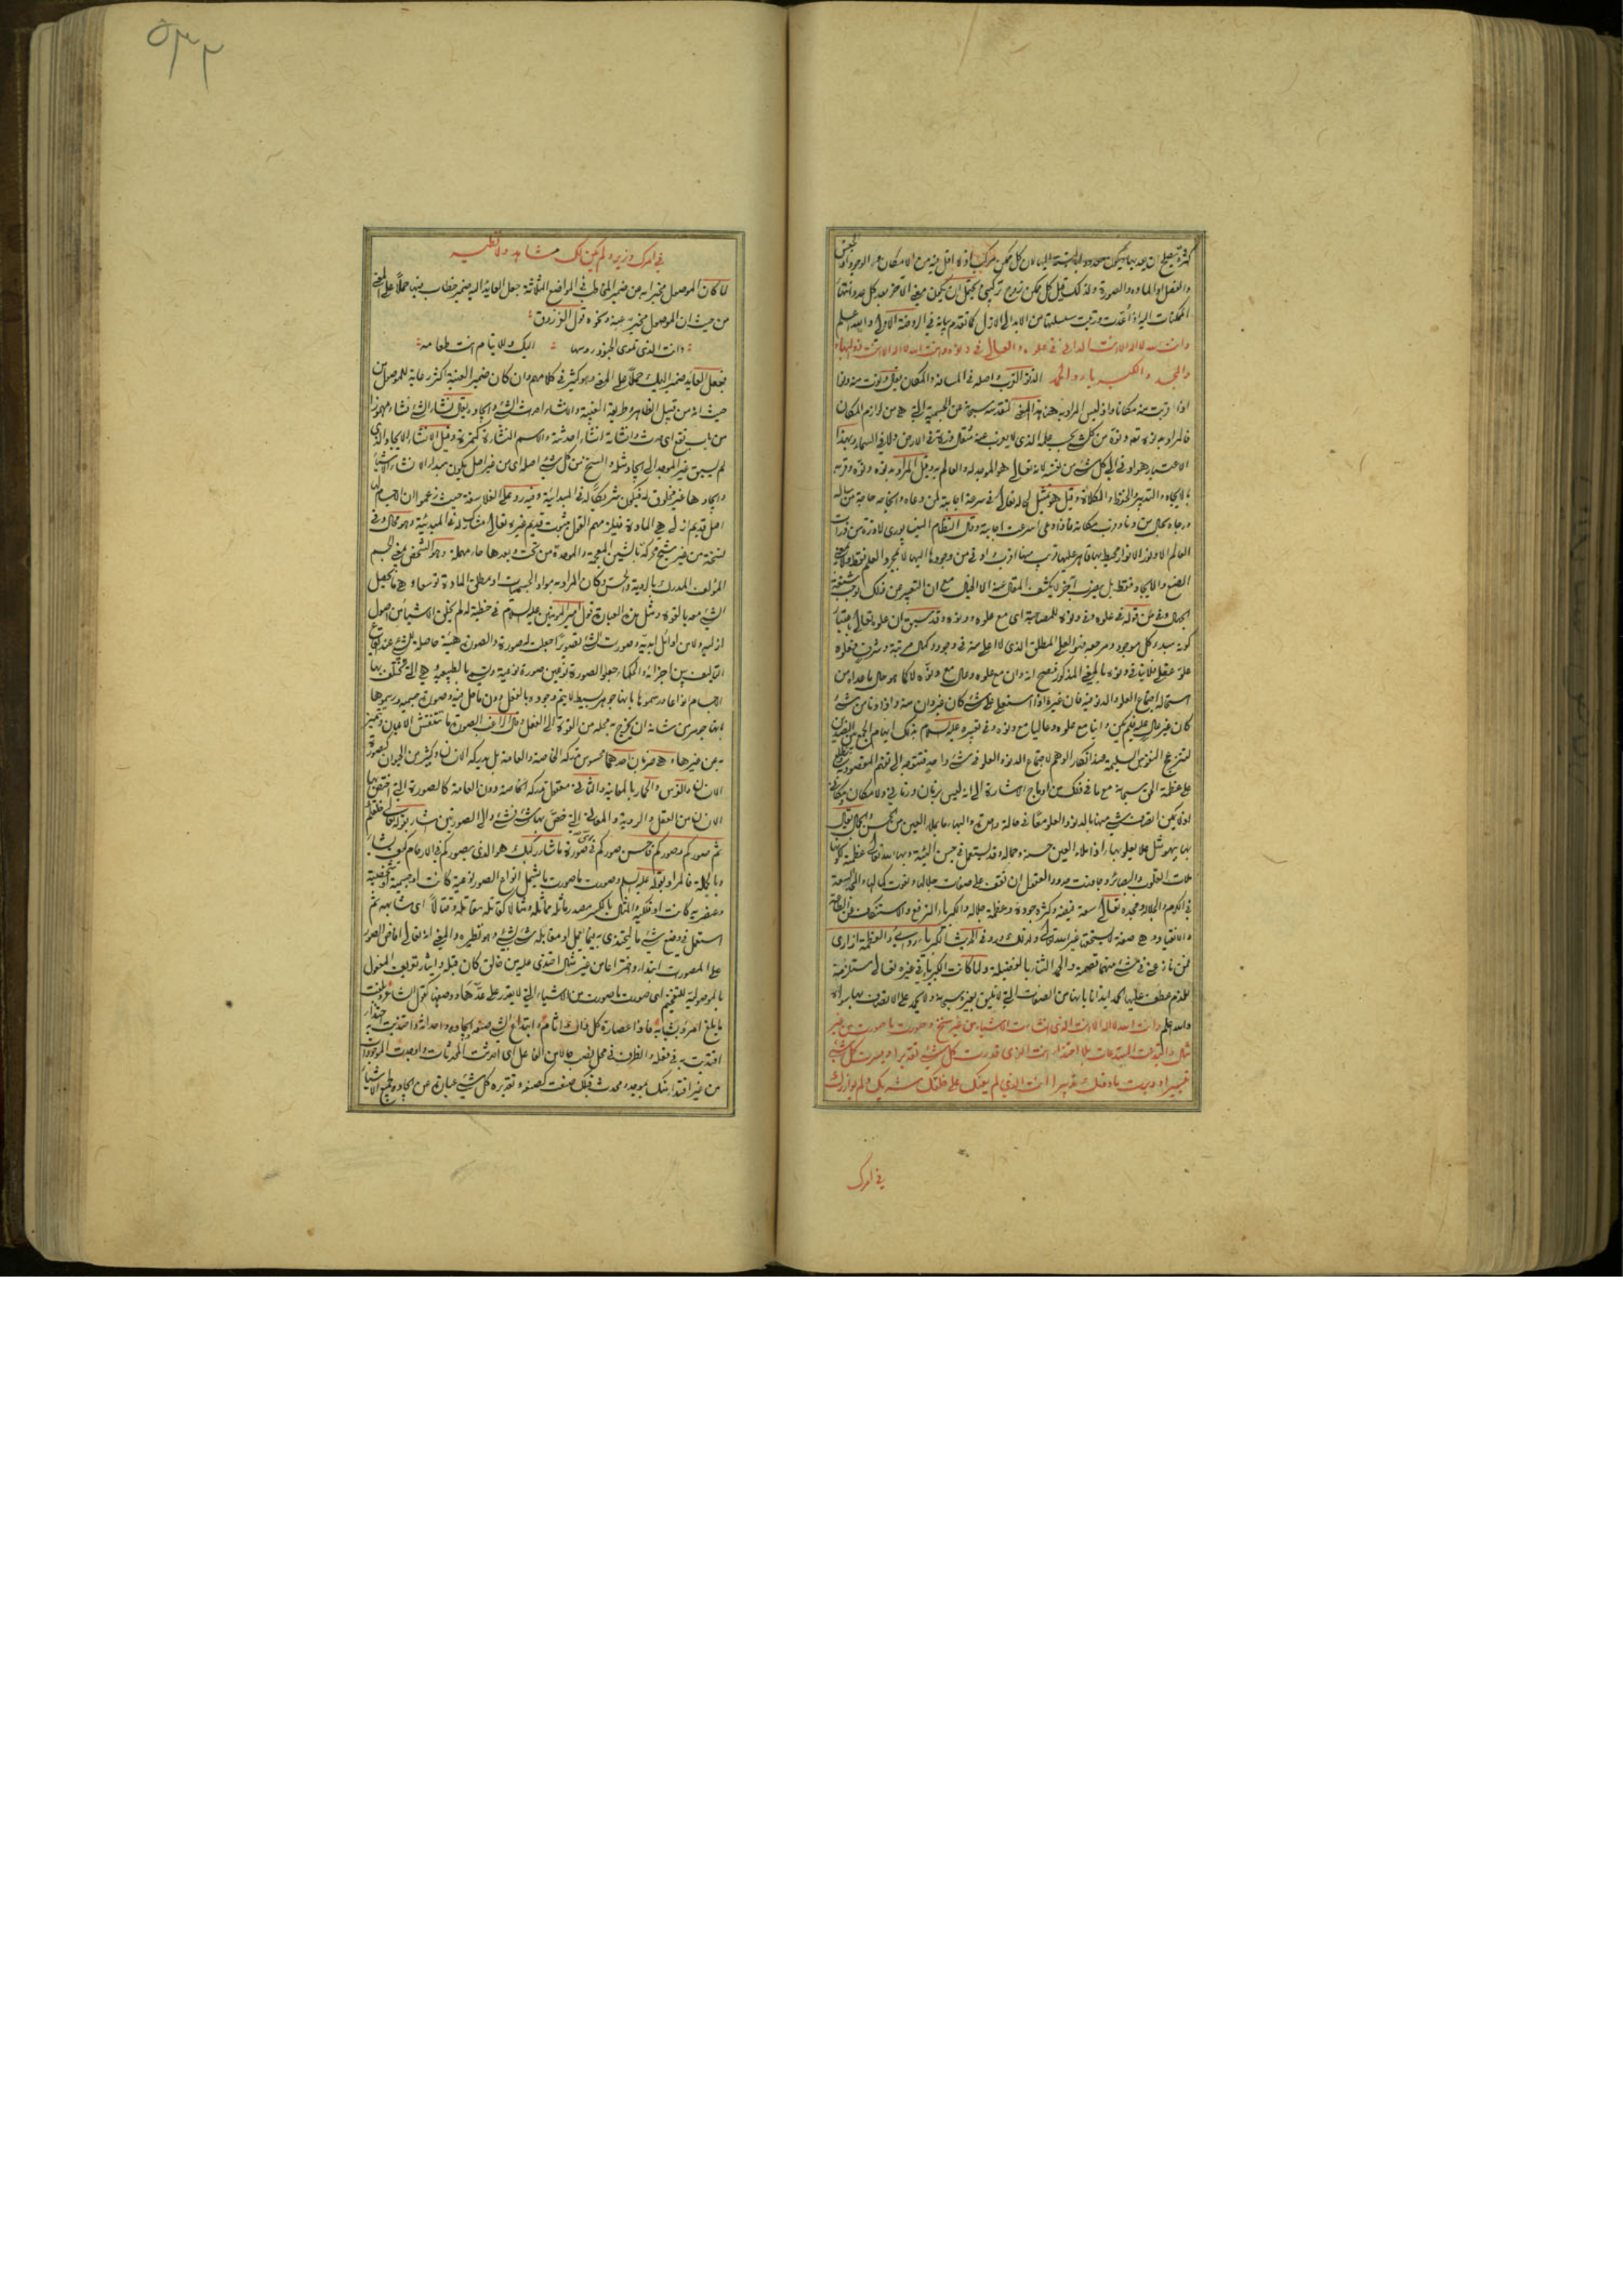 والعقل او المادة والصورة ولذلك قيل كل ممكن زوج تركيبي
الممكنات اليه اذا أخذت ورتبت سلسلتها من الابد الى الازل كما تقدم بيانه في الروضة الاولى والله اعلم
وانت الله لا اله الا انت الداني في علوه والعالي في دنوه وانت الله لا اله الا انت ذو البهاء
والمجد والكبرياء والحمد الدنو القرب واصله في المسافة والمكان يقال دنوت منه ودنا
اذا قربت منه مكانا واذ ليس المراد به هنا هذا المعنى لتقدسه سبحانه عن الجسمية التي هي من لوازم المكان
فالمراد به دنوه من كل شئ بحسب علمه الذي لا يعزب عنه مثقال ذرة في الارض ولا في السماء وبهذا
الاعتبار هو ادنى الى كل شئ من نفسه لانه تعالى هو الموجد له والعالم به وقيل المراد به دنوه وقربه
بالايجاد والتدبير والحفظ والكلاءة وقيل هو تمثيل لحاله تعالى في سرعة اجابته لمن دعاه
العالم الا ونور الانوار محيط بها قاهر عليها قريب منها اقرب
الصنع والايجاد فقط بل بضرب آخر لا يكشف المقال عنه الا الخيال مع ان التعبير عن ذلك
الجهال وفي من قوله في علوه وفي دنوه للمصاحبة اى مع علوه ودنوه وقد سبق ان علوه تعالى باعتبار
كونه مبدء كل موجود ومرجعه فهو العلي المطلق الذي لا اعلى منه في وجود وكمال مرتبة وشرف فعلوه
علو عقلي فلا ينافي دنوه بالمعنى المذكور فصح انه دان مع علوه وعال مع دنوه لا كما هو حال ما عداه من
استحالة اجتماع العلو والدنو فيه فان غيره اذا استعلى على شئ كان غير دان منه واذا دنا من شئ
كان غير عال عليه فلم يكن دانيا مع علوه وعاليا مع دنوه
على عظمة الحق سبحانه مع ما في ذلك من ادماج الاشارة الى انه ليس بزمان وزماني ولا مكان ومكاني
اذ لا يمكن اتصاف شئ منهما بالدنو والعلو معا في حالة واحدة والبهاء ما يملأ العين من الحسن والجمال يقال
ملأت القلوب والبصائر وجاوزت حدود العقول ان تقف على صفات جلاله ونعوت كماله والمجد السعة
في الكرم والجلال ومجده تعالى سعة فيضه وكثرة جوده وعظمة جلاله والكبرياء الترفع والاستنكاف عن الطاعة
والانقياد وهي صفة لا يستحقها غير الله تعالى ولذلك ورد في الحديث الكبرياء ردائي والعظمة ازاري
فمن نازعني في شئ منهما قصمته والحمد الثناء بالفضيلة ولما كانت الكبرياء في غيره تعالى مستلزمة
للذم عطف عليها الحمد ايذانا بانها من الصفات التي لا تليق بغيره سبحانه ولا يحمد على الاتصاف بها سواه
والله اعلم وانت الله لا اله الا انت الذي انشأت الاشياء من غير سنخ وصورت ما صورت من غير
مثال وابتدعت المبتدعات بلا احتذاء انت الذي قدرت كل شئ تقديرا ويسرت كل شئ
تيسيرا ودبرت ما دونك تدبيرا انت الذي لم يعنك على خلقك شريك ولم يوازرك
في امرك
٥٣٢
في امرك وزير ولم يكن لك مشاهد ولا نظير
لما كان الموصول مخبرا به عن ضمير المخاطب في المواضع الثلاثة جعل العائد اليه ضمير خطاب فيها حملا على المعنى
من حيث ان الموصول مخبر به عنه ونحوه قول الفرزدق
وانت الذي تلوى الجنود رؤسها اليك وللايتام انت طعامه
فجعل العائد ضمير اليك حملا على المعنى وهو كثير في كلامهم وان كان ضمير الغيبة اكثر رعاية للموصول من
حيث انه من قبيل الظاهر وطريقه الغيبة والانشاء احداث الشئ وايجاده يقال نشأ الشئ نشاء مهموزا
من باب نفع اى حدث وانشأته انشاء احدثته والاسم النشأة كتمرة وقيل الانشاء الايجاد الذي
لم يسبق غير الموجد الى ايجاد مثله والسنخ من كل شئ اصله اى من غير اصل يكون مبدء لانشاء الاشياء
وايجادها غير مخلوق له فيكون شريكا له في المبدائية وفيه رد على الفلاسفة حيث زعموا ان الاجسام لها
اصل قديم ازلي هي المادة فيلزمهم القول بثبوت قديم غيره تعالى مشاركا له في المبدئية وهو محال وفي
نسخة من غير شبح محركة بالشين المعجمة والموحدة من تحت وبعدها حاء مهملة وهو الشخص بمعنى الجسم
المؤلف المدرك بالرؤية والحس وكان المراد به مواد الجسميات او مطلق المادة توسعا وهي ما يحصل
الشئ معه بالقوة ومثل هذه العبارة قول امير المؤمنين عليه السلام في خطبة له لم يخلق الاشياء من اصول
ازلية ولا من اوائل ابدية وصورت الشئ تصويرا جعلت له صورة والصورة هيئة حاصلة للشئ عند ايقاع
التأليف بين اجزائه والحكماء جعلوا الصورة نوعين صورة نوعية وتسمى بالطبيعية وهي التي تختلف بها
الاجسام انواعا ورسموها بانها جوهر بسيط لا يتم وجوده بالفعل دون ما حل فيه وصورة جسمية ورسموها
بانها جوهر من شانه ان يخرج به محله من القوة الى الفعل وقال الراغب الصورة ما ينتقش به الاعيان وتتميز
به عن غيرها وهي ضربان احدهما محسوس تدركه الخاصة والعامة بل يدركه الانسان وكثير من الحيوان كصورة
الانسان والفرس والحمار بالمعاينة والثاني معقول تدركه الخاصة دون العامة كالصورة التي اختص بها
الانسان من العقل والروية والمعاني التي خص بها شئ بشئ والى الصورتين اشار بقوله تعالى خلقناكم
ثم صورناكم وصوركم فاحسن صوركم في اى صورة ما شاء ركبك هو الذي يصوركم في الارحام كيف يشاء
وبالجملة فالمراد بقوله عليه السلام وصورت ما صورت ما يشمل انواع الصور نوعية كانت او جسمية او شخصية
وعنصرية كانت او فلكية والمثال بالكسر مصدر ماثله مماثلة ومثالا كقاتله مقاتلة وقتالا اى شابهه ثم
استعمل في وضع شئ ما ليحتذى به فيما يعمل او مقابلة شئ بشئ وهو نظيره والمعنى انه تعالى افاض الصور
على المصورات ابتداء واختراعا من غير مثال احتذى عليه من خالق كان قبله وايثار تعريف المفعول
بالموصولية للتفخيم اى صورت ما صورت من الاشياء التي لا يقدر على عدها ووصفها كقول الشاعر وبلغت
ما بلغ امرؤ بشبابه فاذا عصارة كل ذاك اثام وابتداع الشئ صنعه وايجاده واحداثه واحتذيت به احتذاء
اقتديت به في فعله والظرف في محل نصب حال من الفاعل اى احدثت المحدثات واوجدت الموجودات
من غير اقتداء منك بموجد ومحدث قبلك صنعت كصنعه وتقديره كل شئ عبارة عن ايجاده